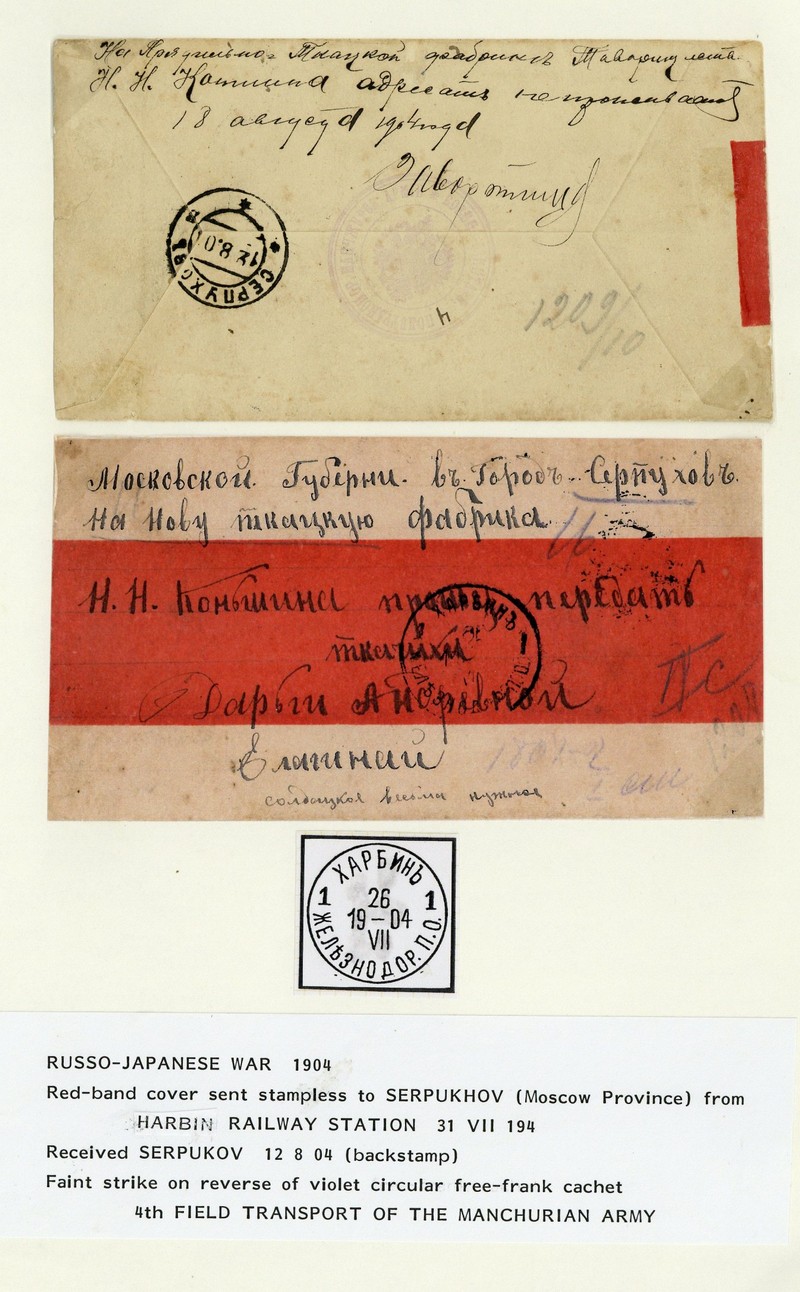 На Прядильно-Ткацкой фабрикѣ Товарищества
Н. Н. Коншина адресатъ непроживаетъ
18 августа 1904 года
СЕРПУХОВ
12.8.04
4
1209/10
Московской Губерни. въ Городъ Серпуховъ.
На Нову ткацкую фабрика
Н. Н. Коньшина прошу передать
ткачихи
Дарьи Андревной
Елагиной
солдацкое весьма нужное
ХАРБИНЪ
1 26 1
19-04
VII
ЖЕЛѢЗНОДОР. П.О.
RUSSO-JAPANESE WAR 1904
Red-band cover sent stampless to SERPUKHOV (Moscow Province) from
HARBIN RAILWAY STATION 31 VII 194
Received SERPUKOV 12 8 04 (backstamp)
Faint strike on reverse of violet circular free-frank cachet
4th FIELD TRANSPORT OF THE MANCHURIAN ARMY